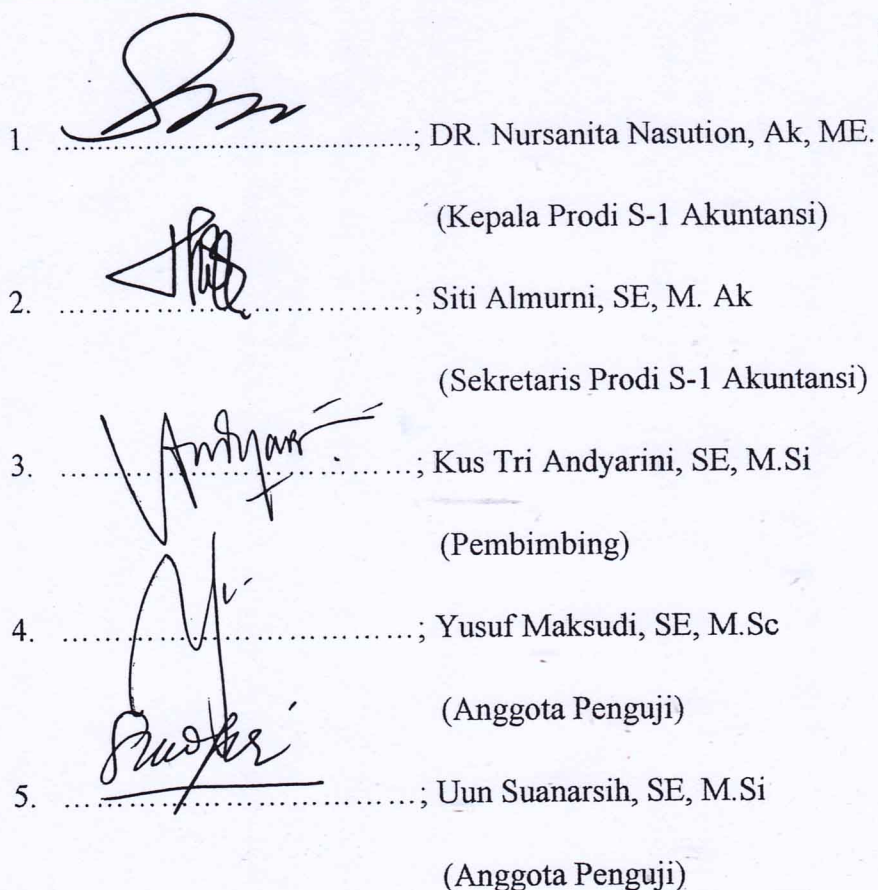 1. ..........................................; DR. Nursanita Nasution, Ak, ME.
(Kepala Prodi S-1 Akuntansi)
2. ..........................................; Siti Almurni, SE, M. Ak
(Sekretaris Prodi S-1 Akuntansi)
3. ..........................................; Kus Tri Andyarini, SE, M.Si
(Pembimbing)
4. ..........................................; Yusuf Maksudi, SE, M.Sc
(Anggota Penguji)
5. ..........................................; Uun Suanarsih, SE, M.Si
(Anggota Penguji)